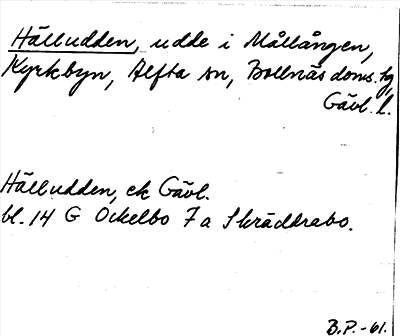 Hälludden, udde i Mållången,
Kyrkbyn, Alfta sn, Bollnäs doms.hg,
Gävl. l.
Hälludden, ek Gävl.
bl. 14 G Ockelbo 7 a Skräddrabo.
B.P. -61.